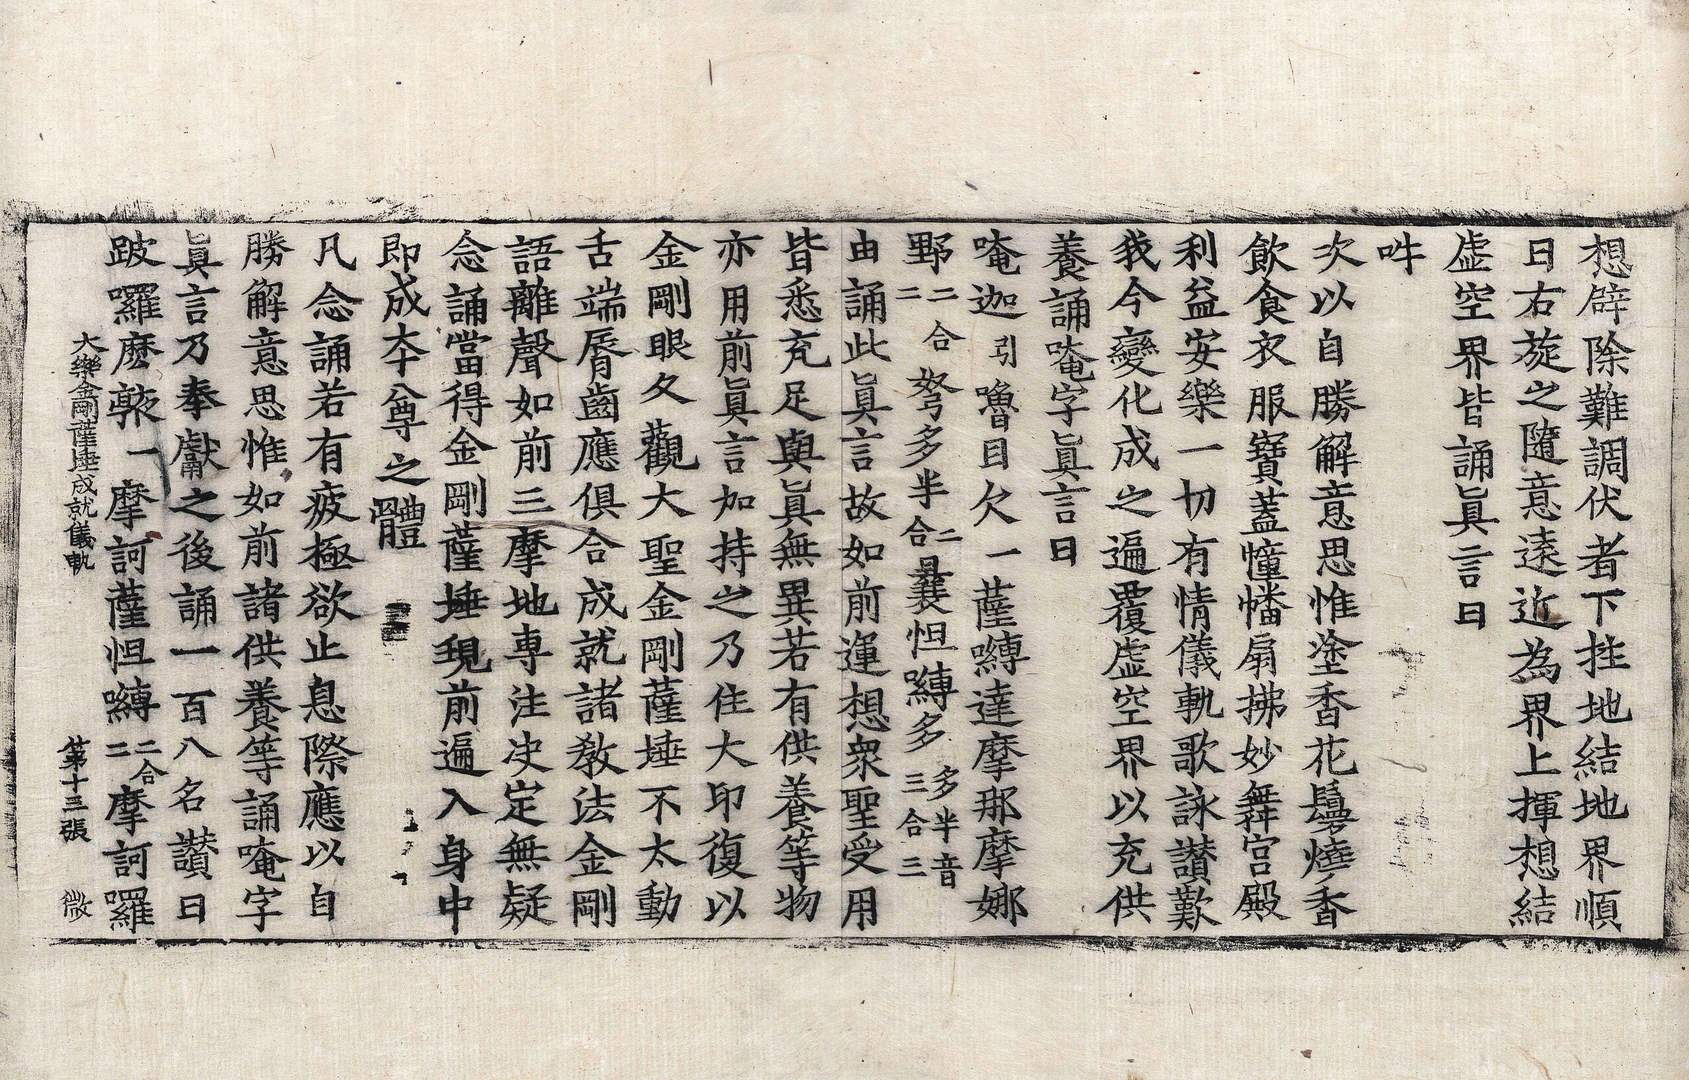 想辟除難調伏者下拄地結地界順
日右旋之隨意遠近為界上揮想結
虛空界皆誦眞言曰
吽
次以自勝解意思惟塗香花鬘燒香
飲食衣服寶蓋幢幡扇拂妙舞宮殿
利益安樂一切有情儀軌歌詠讃歎
我今變化成之遍覆虛空界以充供
養誦唵字眞言曰
唵迦引嚕目欠一薩嚩達摩那摩娜
野二合二弩多半二合曩怛嚩多多半音三合三
由誦此眞言故如前運想衆聖受用
皆悉充足與眞無異若有供養等物
亦用前眞言加持之乃住大印復以
金剛眼久觀大聖金剛薩埵不太動
舌端脣齒應俱合成就諸敎法金剛
語離聲如前三摩地專注決定無疑
念誦當得金剛薩埵現前遍入身中
即成本尊之體
凡念誦若有疲極欲止息際應以自
勝解意思惟如前諸供養等誦唵字
眞言乃奉獻之後誦一百八名讃曰
跛囉麽䭾一摩訶薩怛嚩二合二摩訶囉
大樂金剛薩埵成就儀軌 第十三張 微